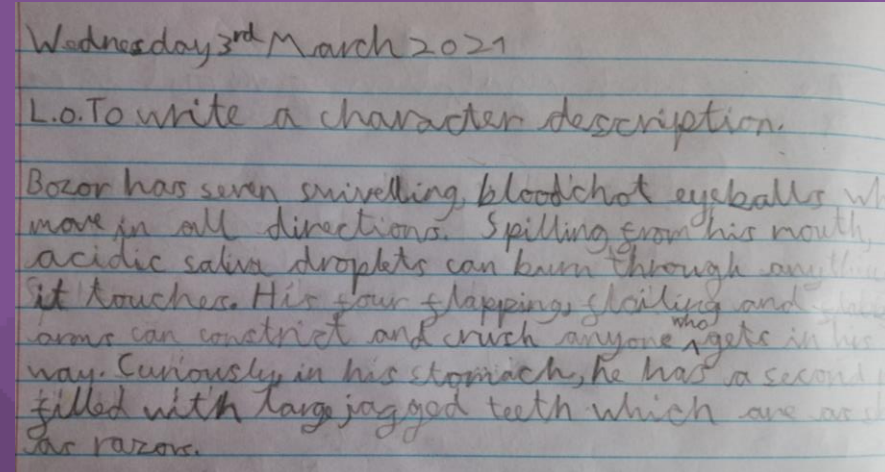 Wednesday 3rd March 2021
L.O. To write a character description.
Bozor has seven swivelling, bloodchot eyeballs
move in all directions. Spilling from his mouth,
acidic saliva droplets can burn through
it touches. His four flapping, flailing and
arms can constrict and crush anyone who gets in his
way. Curiously, in his stomach, he has a second
filled with large jagged teeth which are as
as razors.